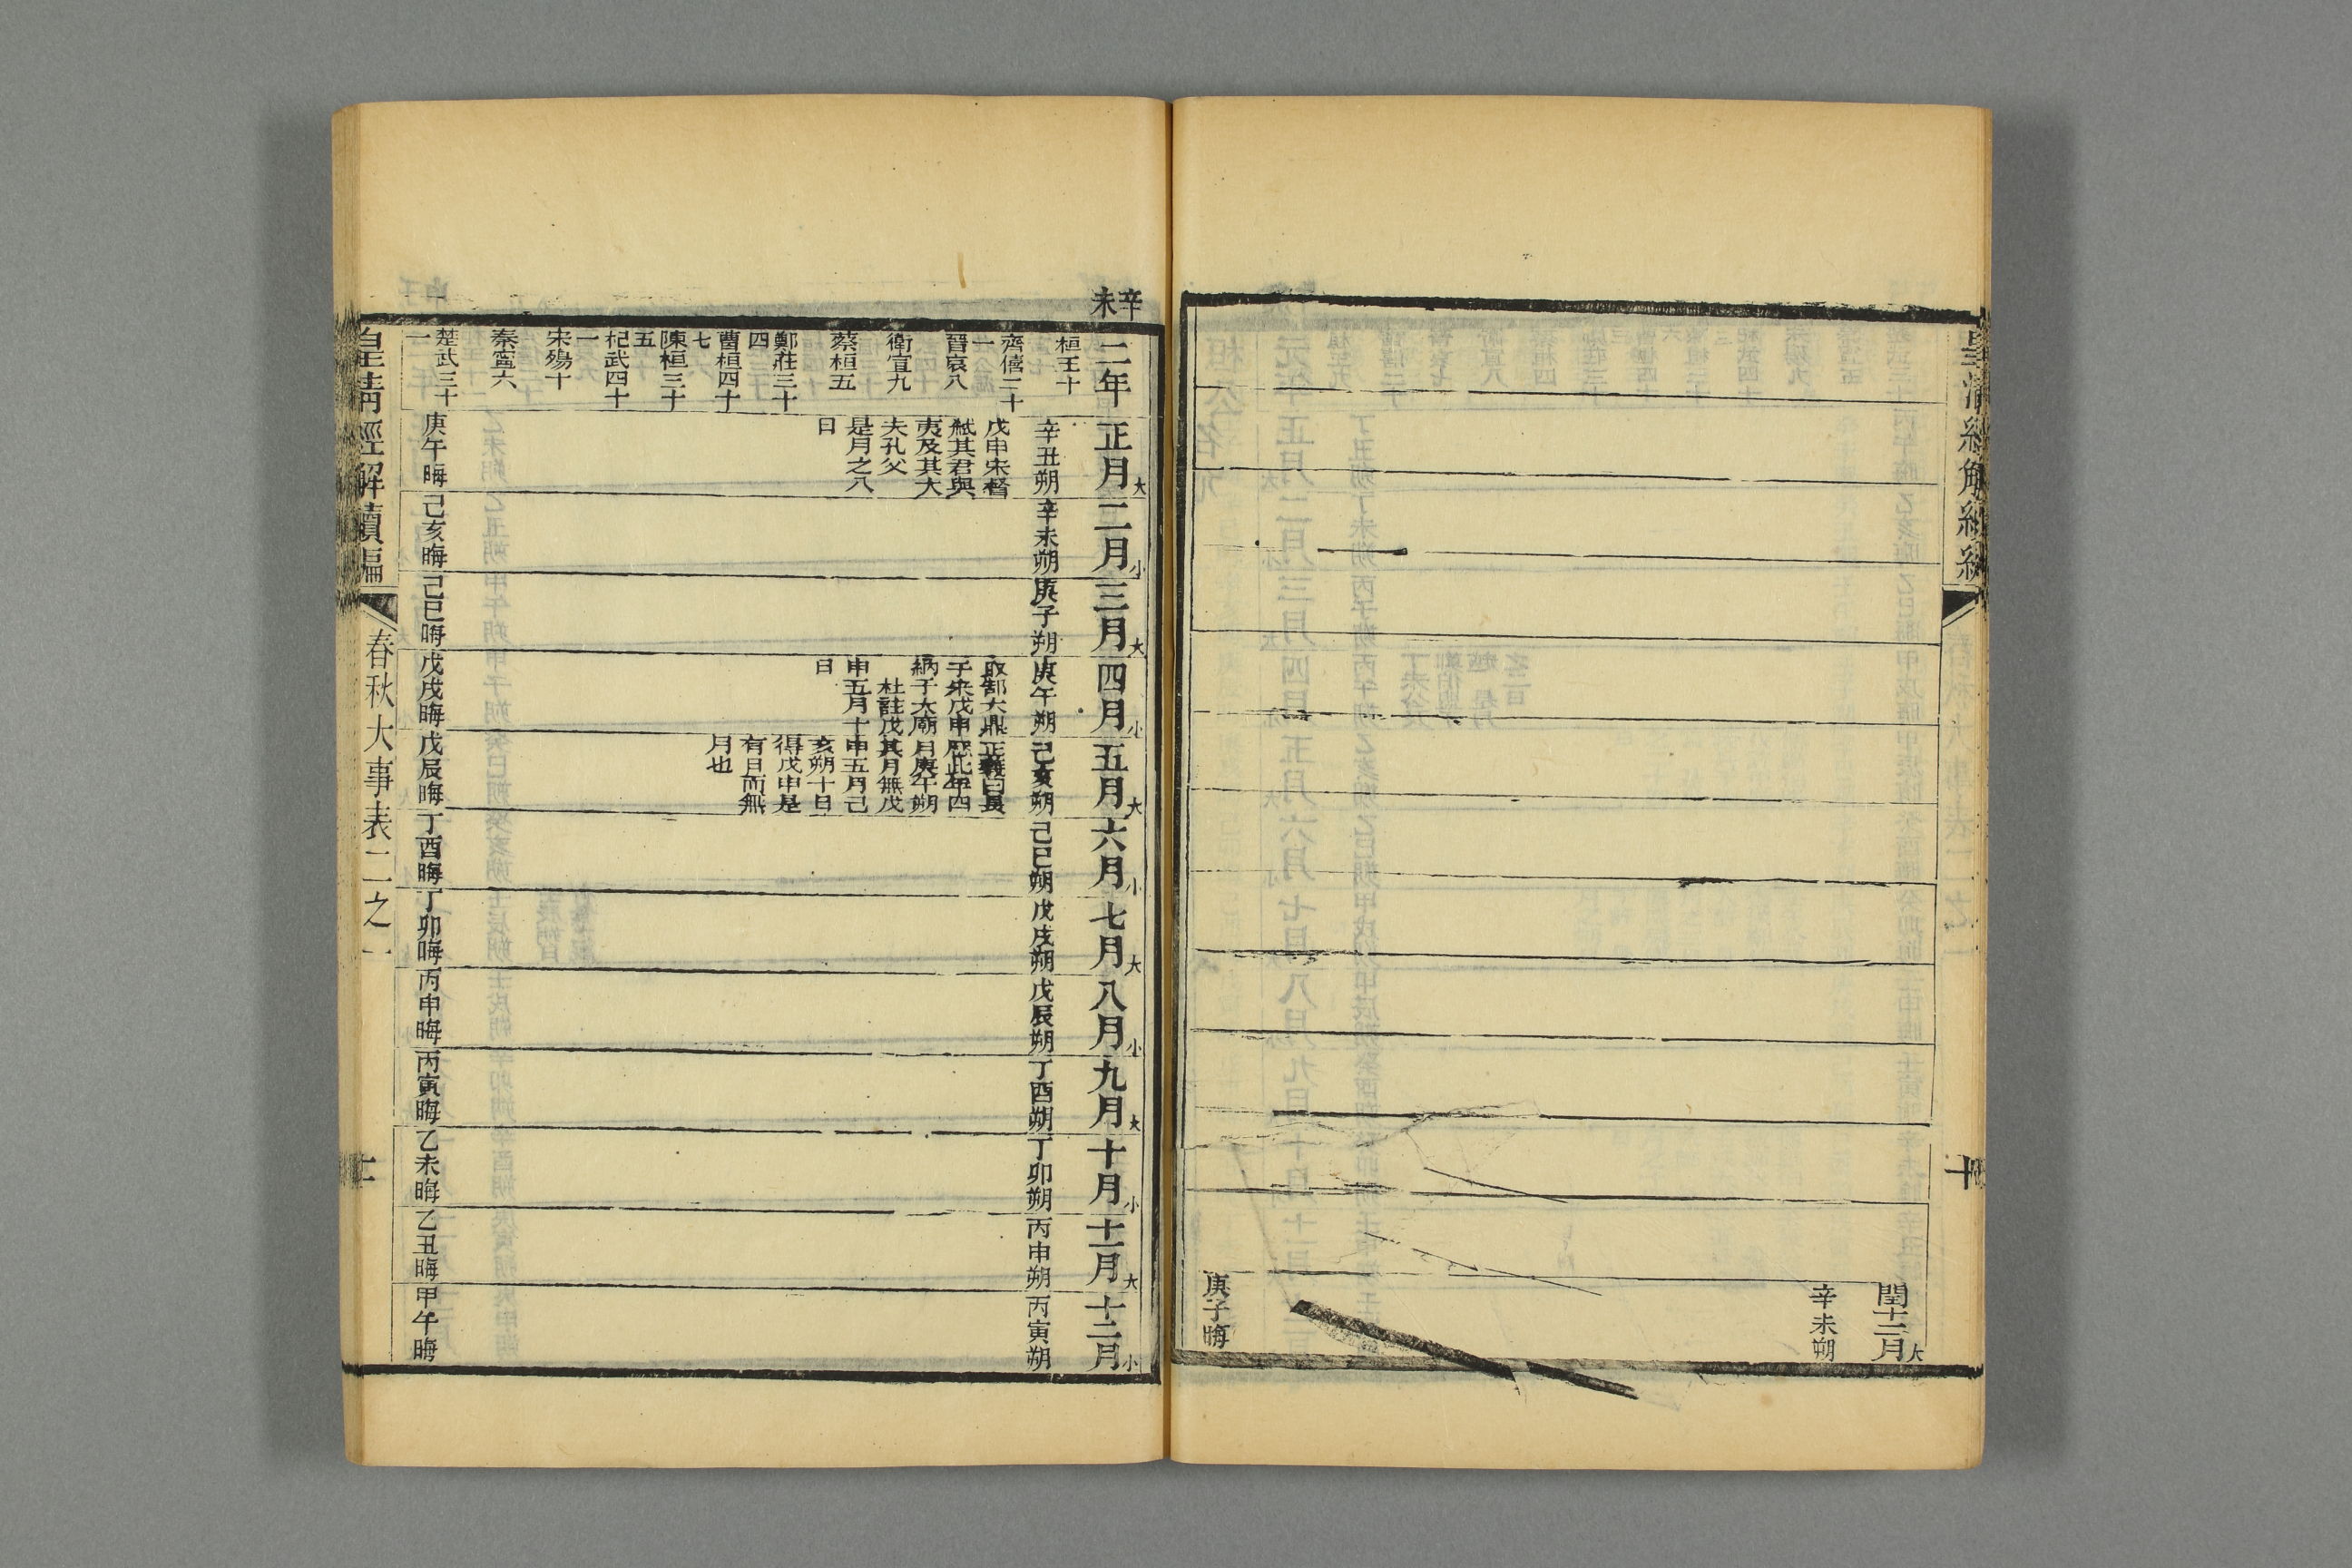 閏十二月大
辛未朔
庚子晦
十
辛未
二年
桓王十
齊僖二十
一
晉哀八
衛宣九
蔡桓五
鄭莊三十
四
曹桓四十
七
陳桓三十
五
杞武四十
一
宋殤十
秦寧六
楚武三十
一
正月大
辛丑朔
戊申宋督
弒其君與
夷及其大
夫孔父
是月之八
日
庚午晦
二月小
辛未朔
己亥晦
三月大
庚子朔
己巳晦
四月小
庚午朔
取郜大鼎
于宋戊申
納于太廟
杜註戊
申五月十
日
戊戌晦
五月大
己亥朔
正義曰長
歷此年四
月庚午朔
其月無戊
申五月己
亥朔十日
得戊申是
有日而無
月也
戊辰晦
六月小
己巳朔
丁酉晦
七月大
戊戌朔
丁卯晦
八月小
戊辰朔
丙申晦
九月大
丁酉朔
丙寅晦
十月小
丁卯朔
乙未晦
十一月大
丙申朔
乙丑晦
十二月小
丙寅朔
甲午晦
皇清經解續編
春秋大事表二之一